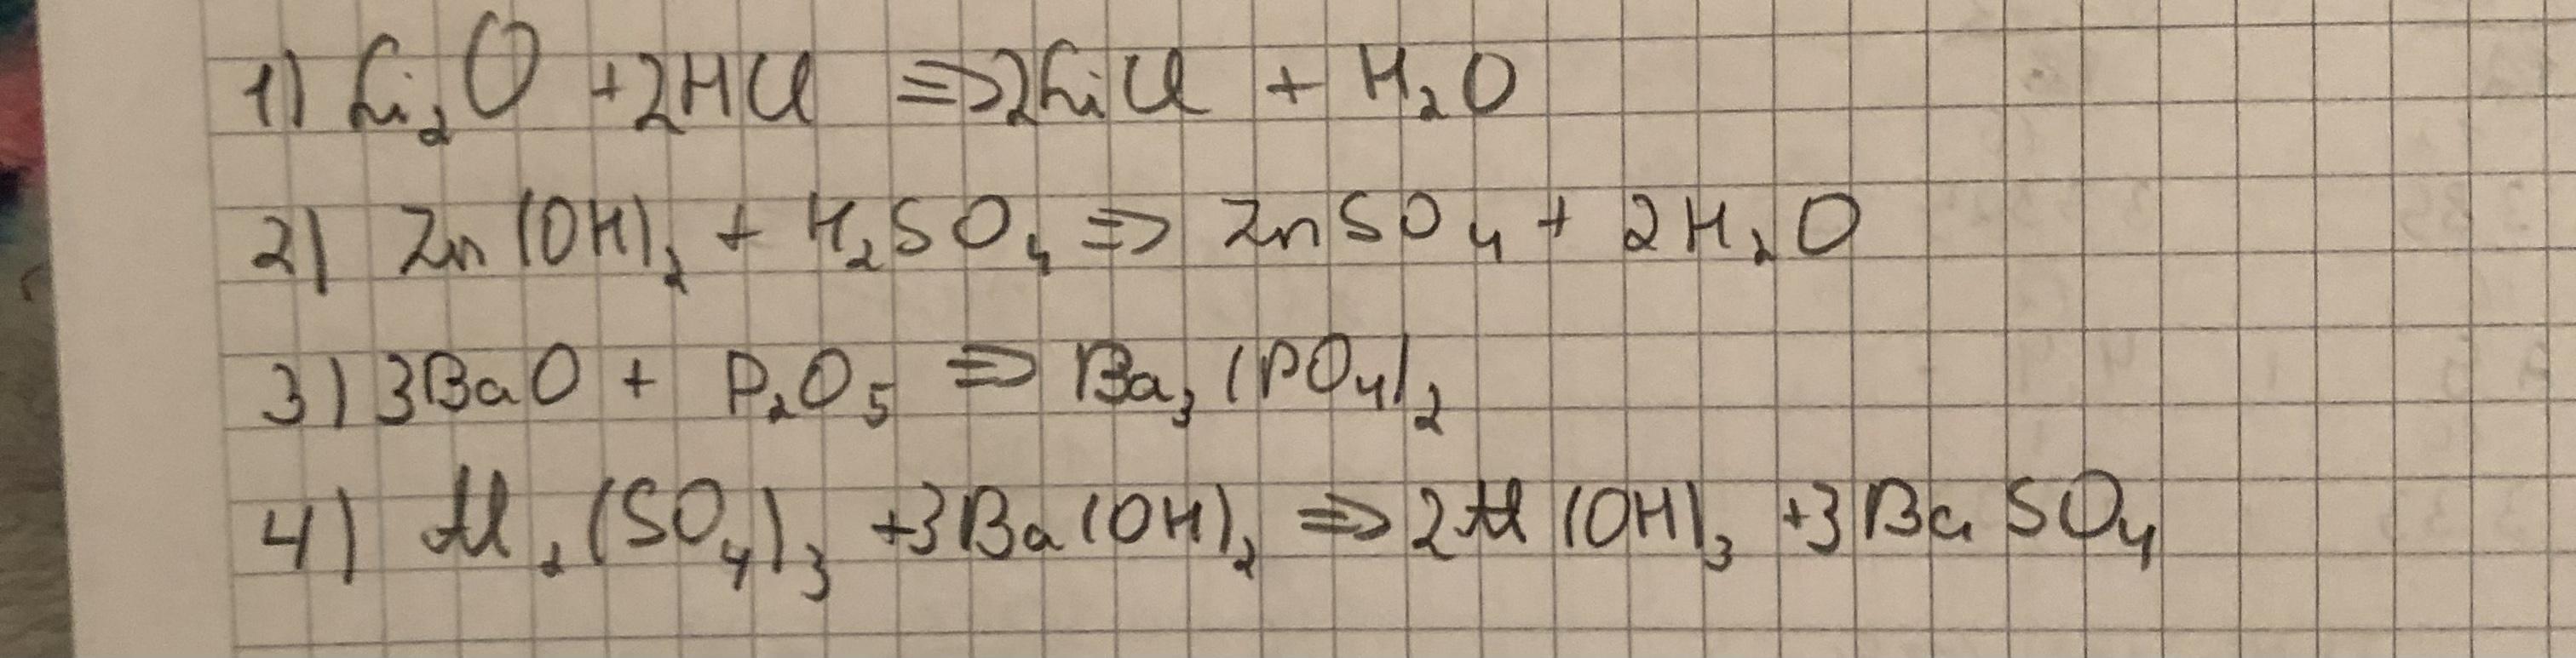 1) Li₂O +2HCl ⇒2LiCl + H₂O
2) Zn(OH)₂ + H₂SO₄ ⇒ ZnSO₄ + 2H₂O
3) 3BaO + P₂O₅ ⇒ Ba₃(PO₄)₂
4) Al₂(SO₄)₃ +3Ba(OH)₂ ⇒ 2Al(OH)₃ +3BaSO₄